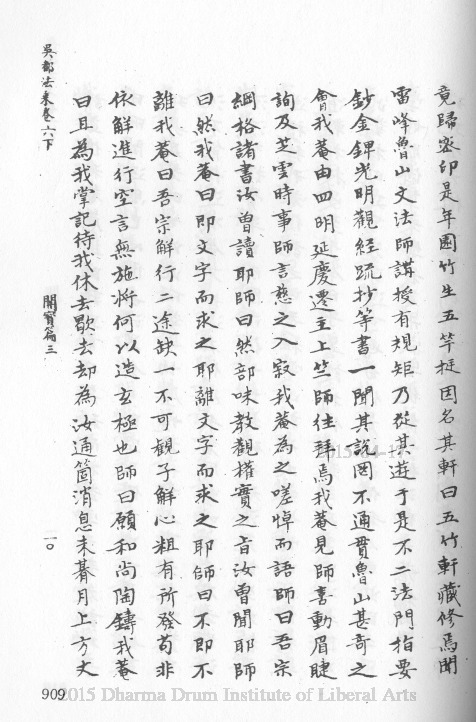 竟歸密印是年園竹生五竿挺因名其軒曰五竹軒藏修焉聞
雷峰魯山文法師講授有規矩乃從其遊于是不二法門指要
鈔金錍光明觀經疏抄等書一聞其說罔不通貫魯山甚奇之
會我菴由四明延慶遷主上竺師往拜焉我菴見師喜動眉睫
詢及芝雲時事師言慈之入寂我菴為之嗟悼而語師曰吾宗
綱格諸書汝曾讀耶師曰然部味教觀權實之旨汝曾聞耶師
曰然我菴曰即文字而求之耶離文字而求之耶師曰不即不
離我菴曰吾宗解行二途缺一不可觀子解心粗有所發苟非
依解進行空言無施將何以造玄極也師曰願和尚陶鑄我菴
曰且為我掌記待我休去歇去却為汝通箇消息未朞月上方丈
吳都法乘卷六下
開實篇三
一〇
909
2015 Dharma Drum Institute of Liberal Arts